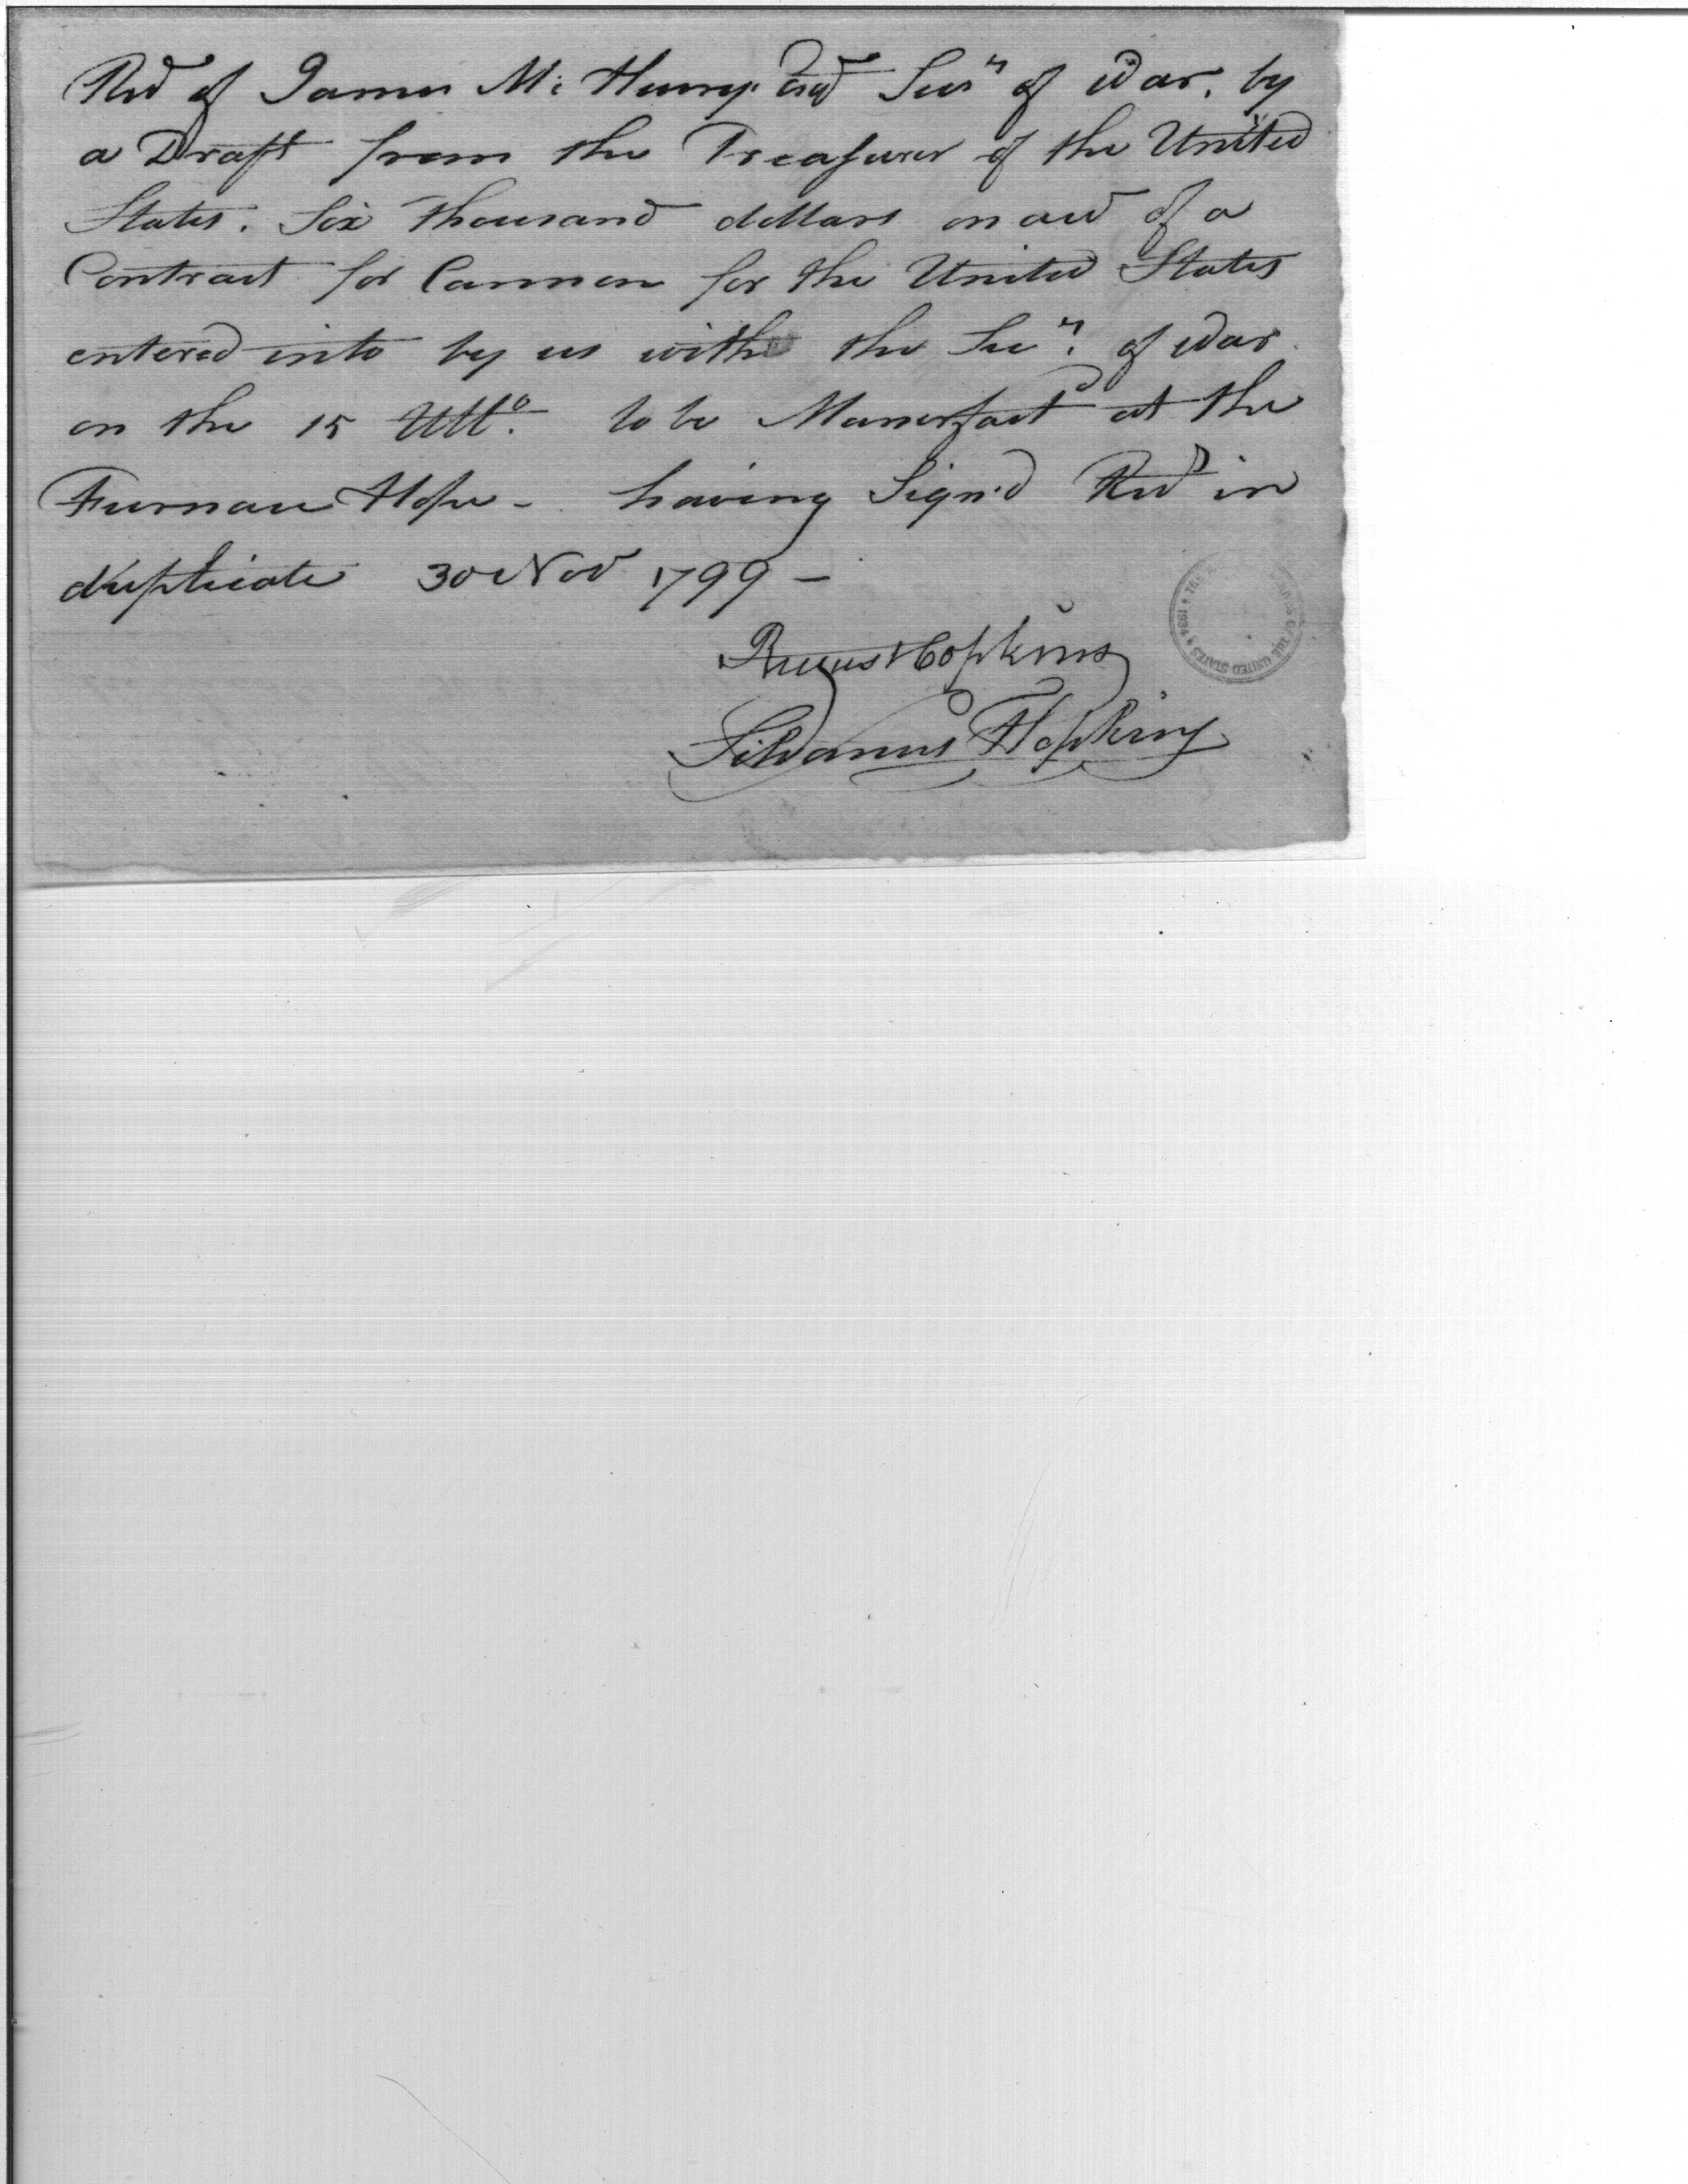 Recd of James Mc Henry Esqr Secry of War, by
a Draft from the Treasurer of the United
States. Six thousand dollars on acct of a
Contract for Cannon for the United States
entered into by us with the Secy. of War
on the 15 Ulto. to be Manufactd at the
Furnace Hope - having Sign'd Recd in
duplicate 30 Nov 1799 -
Rufus Hopkins
Silvanus Hopkins
OF THE UNITED STATES * 1934 * THE